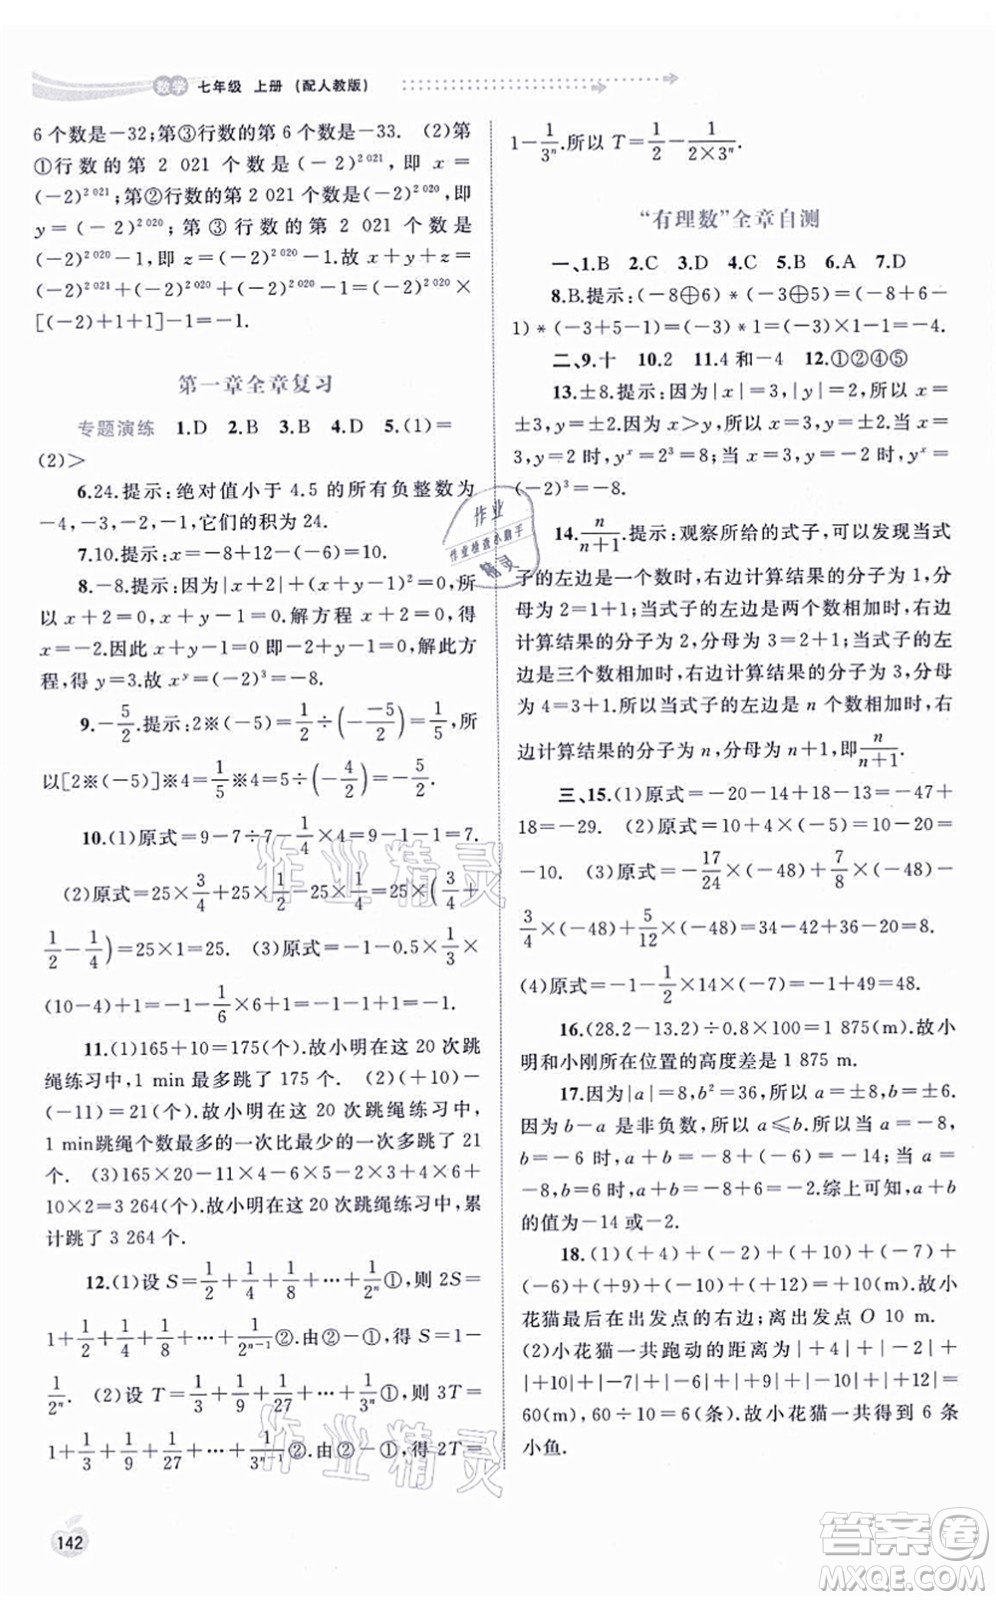 数学 七年级 上册 (配人教版)
6个数是−32;第③行数的第6个数是−33. (2)第
①行数的第 2 021 个数是(−2)^{2 021},即 x=
(−2)^{2 021};第②行数的第 2 021 个数是(−2)^{2 020},即
y=(−2)^{2 020};第③行数的第 2 021 个数是
(−2)^{2 020}−1,即 z=(−2)^{2 020}−1.故 x+y+z=
(−2)^{2 021}+(−2)^{2 020}+(−2)^{2 020}−1=(−2)^{2 020}×
[(−2)+1+1]−1=−1.
第一章全章复习
专题演练 1.D 2.B 3.B 4.D 5.(1)=
(2)>
6.24.提示:绝对值小于 4.5 的所有负整数为
−4,−3,−2,−1,它们的积为 24.
7.10.提示:x=−8+12−(−6)=10.
8.−8.提示:因为|x+2|+(x+y−1)²=0,所
以 x+2=0,x+y−1=0.解方程 x+2=0,得
x=−2.因此 x+y−1=0 即−2+y−1=0,解方
程,得 y=3.故 x^y=(−2)³=−8.
9.−5/2.提示:2※(−5)=1/2÷(−−5/2)=1/5,所
以[2※(−5)]※4=1/5※4=5÷(−4/2)=−5/2.
10.(1)原式=9−7÷7−1/4×4=9−1−1=7.
(2)原式=25×3/4+25×1/2−25×1/4=25×(3/4+
1/2−1/4)=25×1=25. (3)原式=−1−0.5×1/3×
(10−4)+1=−1−1/6×6+1=−1−1+1=−1.
11.(1)165+10=175(个).故小明在这 20 次跳
绳练习中,1 min最多跳了 175 个. (2)(+10)−
(−11)=21(个).故小明在这 20 次跳绳练习中,
1 min跳绳个数最多的一次比最少的一次多跳了 21
个. (3)165×20−11×4−6×5−1×2+4×6+
10×2=3 264(个).故小明在这 20 次跳绳练习中,累
计跳了 3 264 个.
12.(1)设 S=1/2+1/4+1/8+…+1/2ⁿ①,则 2S=
1+1/2+1/4+1/8+…+1/2ⁿ⁻¹②.由②−①,得 S=1−
1/2ⁿ. (2)设 T=1/3+1/9+1/27+…+1/3ⁿ①,则 3T=
1+1/3+1/9+1/27+…+1/3ⁿ⁻¹②.由②−①,得 2T=
142
1−1/3ⁿ.所以 T=1/2−1/2×3ⁿ.
“有理数”全章自测
一、1.B 2.C 3.D 4.C 5.B 6.A 7.D
8.B.提示:(−8⊕6)*(−3⊕5)=(−8+6−
1)*(−3+5−1)=(−3)*1=(−3)×1−1=−4.
二、9.十 10.2 11.4 和−4 12.①②④⑤
13.±8.提示:因为|x|=3,|y|=2,所以 x=
±3,y=±2.因为 x>y,所以 x=3,y=±2.当 x=
3,y=2 时,y^x=2³=8;当 x=3,y=−2 时,y^x=
(−2)³=−8.
14.n/n+1.提示:观察所给的式子,可以发现当式
子的左边是一个数时,右边计算结果的分子为 1,分
母为 2=1+1;当式子的左边是两个数相加时,右边
计算结果的分子为 2,分母为 3=2+1;当式子的左边
是三个数相加时,右边计算结果的分子为 3,分母
为 4=3+1.所以当式子的左边是 n 个数相加时,右
边计算结果的分子为 n,分母为 n+1,即n/n+1.
三、15.(1)原式=−20−14+18−13=−47+
18=−29. (2)原式=10+4×(−5)=10−20=
−10. (3)原式=−17/24×(−48)+7/8×(−48)−
3/4×(−48)+5/12×(−48)=34−42+36−20=8.
(4)原式=−1−1/2×(1−9)×12=−1+49=48.
16.(28.2−13.2)÷0.8×100=1 875(m).故小
明和小刚所在位置的高度差是 1 875 m.
17.因为|a|=8,b²=36,所以 a=±8,b=±6.
因为 b−a 是非负数,所以 a⩽b.所以当 a=−8,
b=−6 时,a+b=−8+(−6)=−14;当 a=
−8,b=6时,a+b=−8+6=−2.综上可知,a+b
的值为−14 或−2.
18.(1)(+4)+(−2)+(+10)+(−7)+
(−6)+(+9)+(−10)+(+12)=10(m).故小
花猫最后在出发点的右边;离出发点 O 10 m.
(2)小花猫一共跑动的距离为|+4|+|−2|+
|+10|+|−7|+|−6|+|+9|+|−10|+|+12|=
60(m),60÷10=6(条).故小花猫一共得到 6 条
小鱼.
作业
作业检查小助手
精灵
作业精灵
作业精灵
答案圈
MXQE.COM